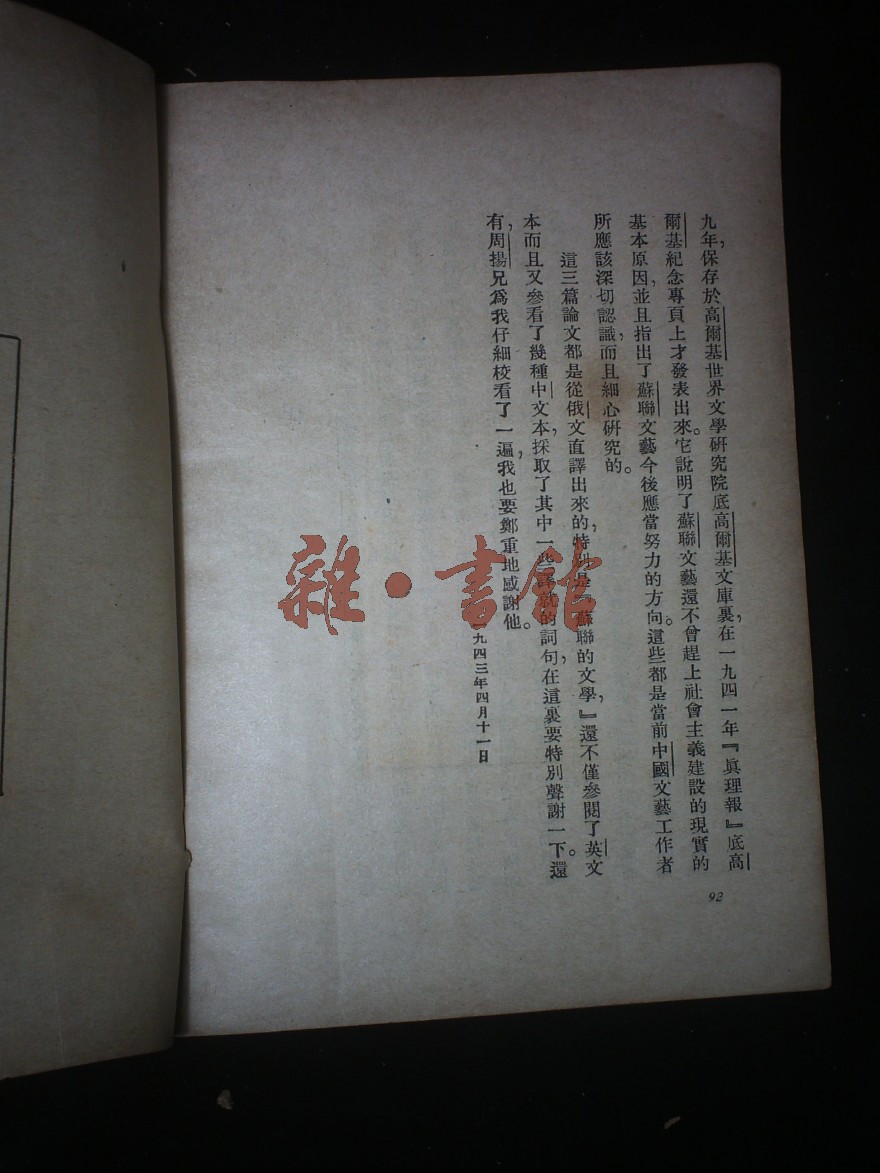 九年，保存於高爾基世界文學硏究院底高爾基文庫裏，在一九四一年『眞理報』底高
爾基紀念專頁上才發表出來。它說明了蘇聯文藝還不曾趕上社會主義建設的現實的
基本原因，並且指出了蘇聯文藝今後應當努力的方向。這些都是當前中國文藝工作者
所應該深切認識，而且細心硏究的。
這三篇論文都是從俄文直譯出來的，特別是『蘇聯的文學，』還不僅參閱了英文
本而且又參看了幾種中文本，採取了其中一些的詞句，在這裏要特別聲謝一下。還
有，周揚兄爲我仔細校看了一遍，我也要鄭重地感謝他。
一九四三年四月十一日
92
雜·書館